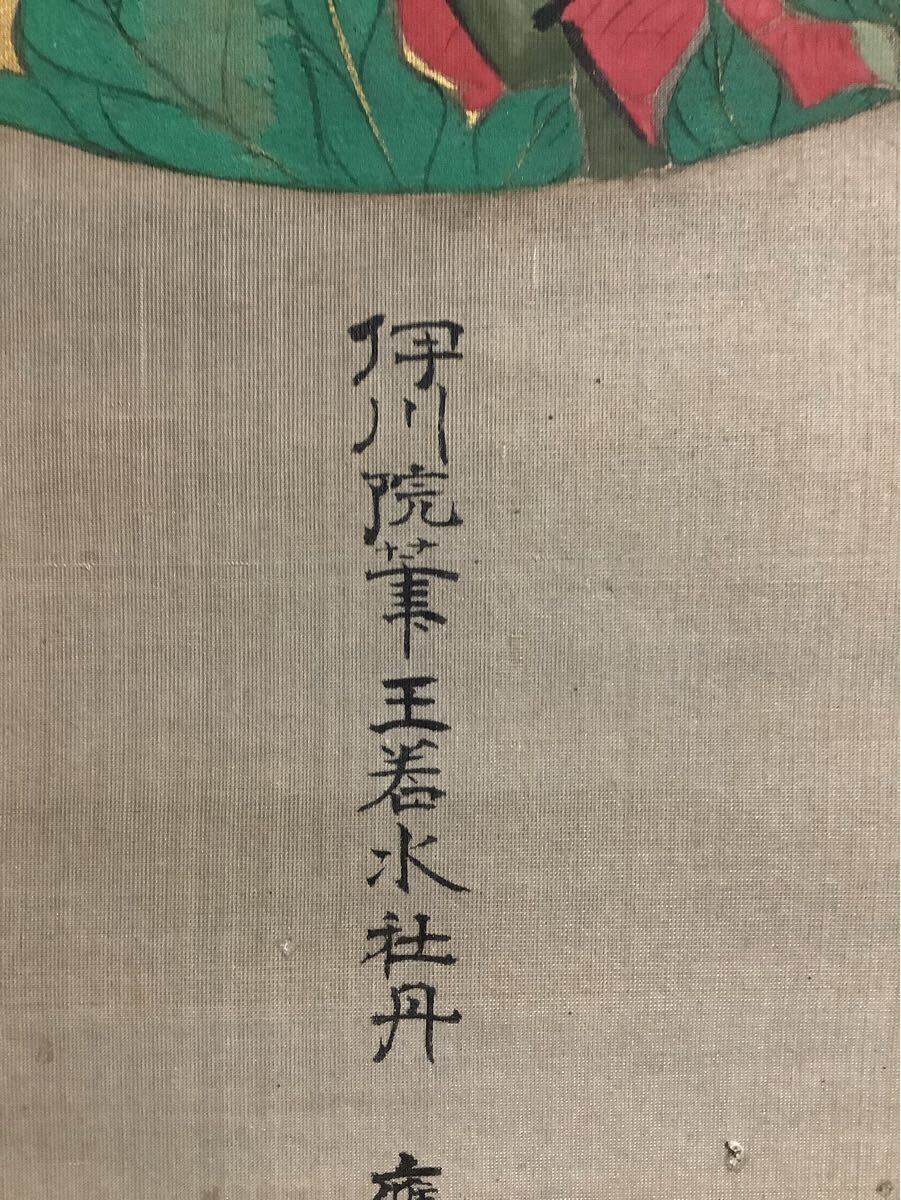 伊川院筆王若水牡丹